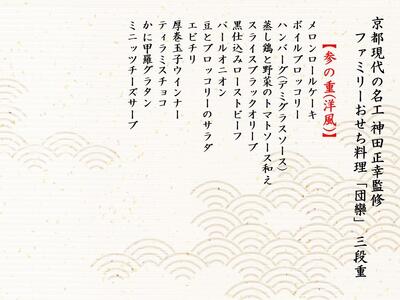 京都現代の名工 神田正幸監修
ファミリーおせち料理「団欒」 三段重
【参の重(洋風)】
メロンロールケーキ
ボイルブロッコリー
ハンバーグ(デミグラスソース)
蒸し鶏と野菜のトマトソース和え
スライスブラックオリーブ
黒仕込みローストビーフ
パールオニオン
豆とブロッコリーのサラダ
エビチリ
厚巻玉子ウインナー
ティラミスチョコ
かに甲羅グラタン
ミニッツチーズサーブ